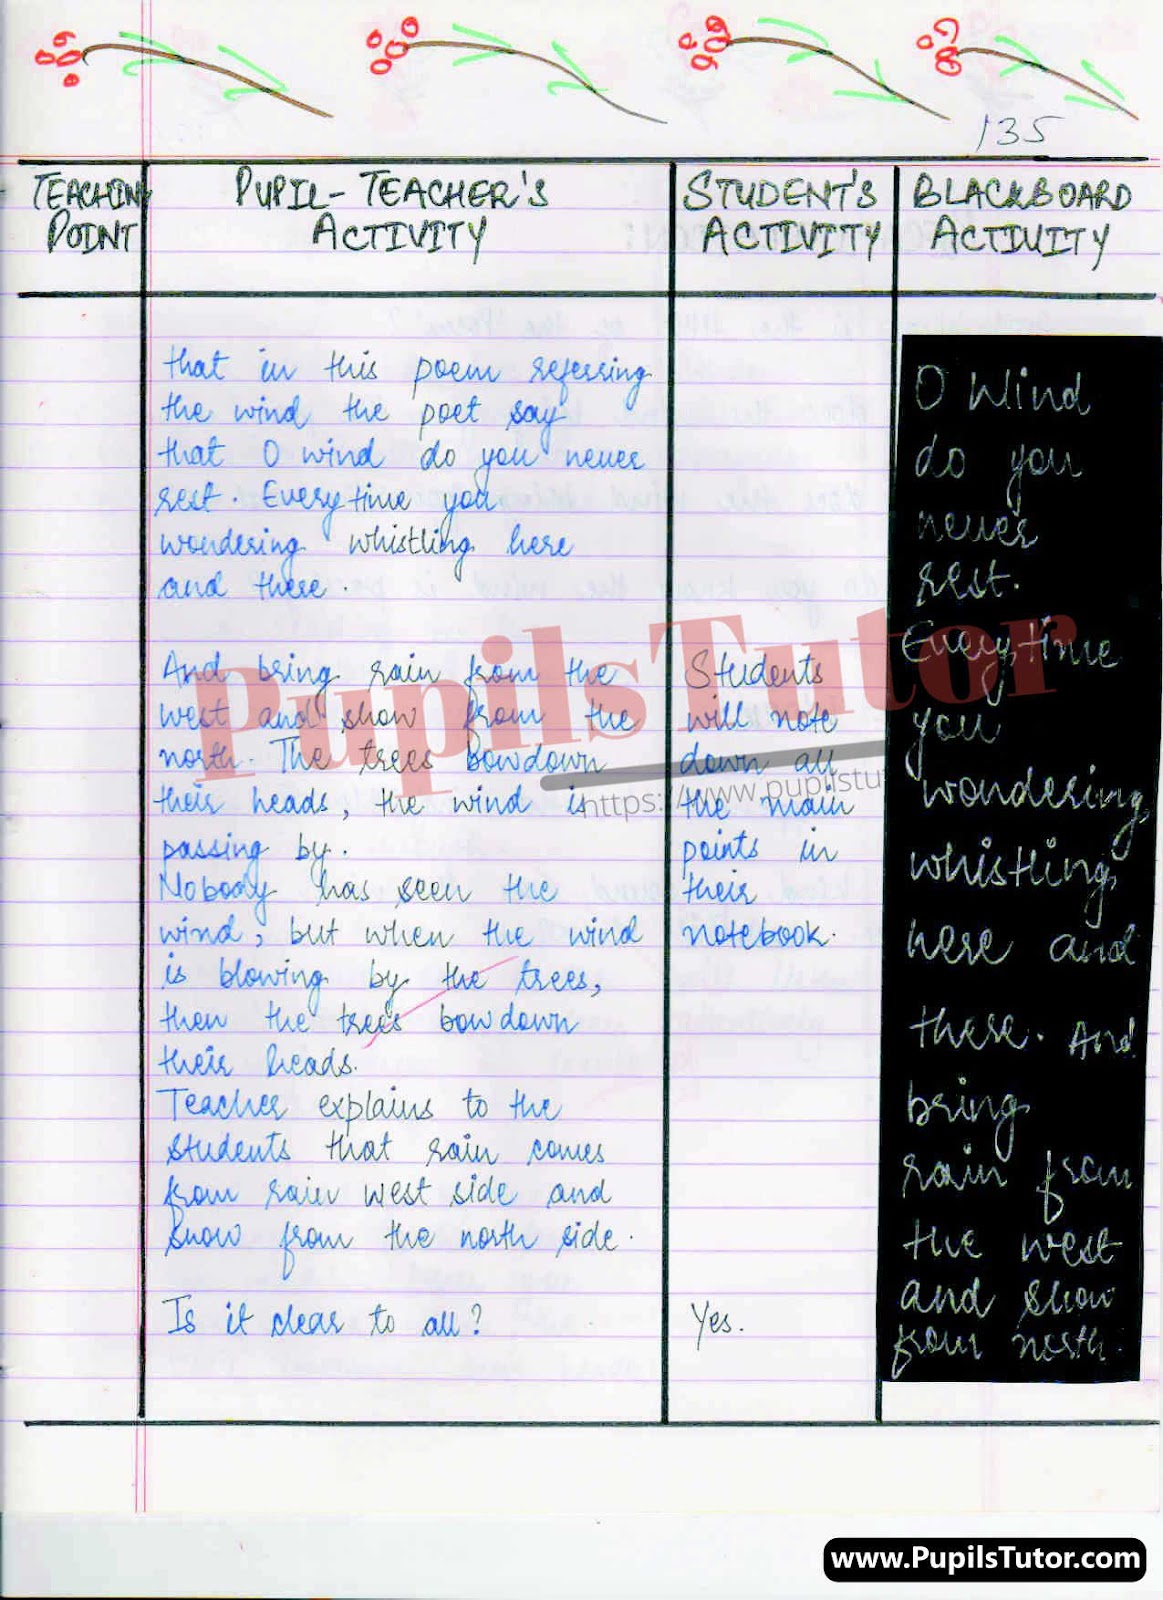 135
TEACHING
POINT
PUPIL-TEACHER'S
ACTIVITY
STUDENT'S
ACTIVITY
BLACKBOARD
ACTIVITY
that in this poem referring
the wind the poet say
that O wind do you never
rest. Every time you
wondering whistling here
and there.
And bring rain from the
west and show from the
north. The trees bowdown
their heads, the wind is
passing by.
Nobody has seen the
wind, but when the wind
is blowing by the trees,
then the trees bowdown
their heads.
Teacher explains to the
students that rain comes
from rain west side and
snow from the north side.
Is it clear to all?
Students
will note
down all
the main
points in
their
notebook.
Yes.
O Wind
do you
never
rest.
Every time
you
wondering
whistling
here and
there. And
bring
rain from
the west
and show
from north.
PupilsTutor
https://www.pupilstu
www.PupilsTutor.com